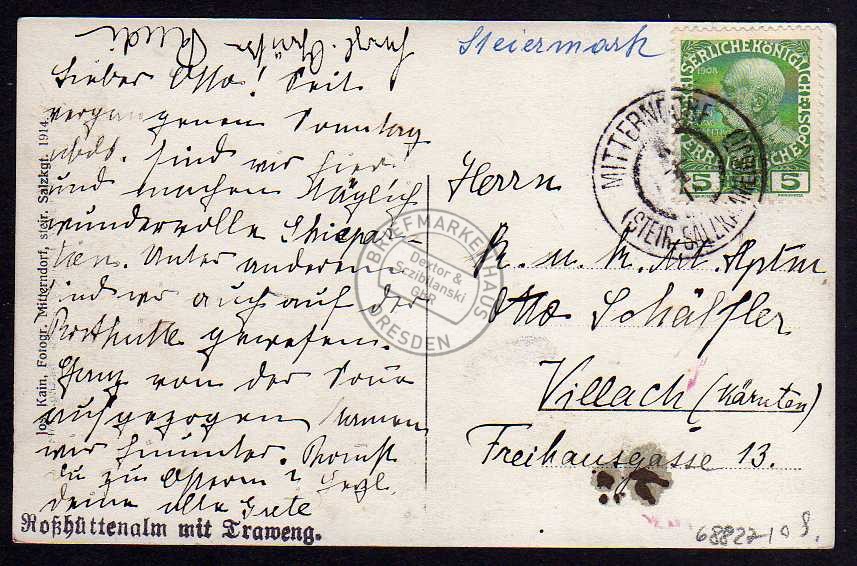 Herzl. Grüße Rudi
Steiermark
Lieber Otto! Seit
vergangenen Sonntag
abds. sind wir hier
und machen täglich
wundervolle Skipar-
tien. Unter anderem
sind wir auch auf der
Rosshütte gewesen.
Ganz von der Sonne
aufgezogen kamen
wir herunter. Kommst
du zu Ostern? Herzl.
deine alte Grete
Roßhüttenalm mit Traweng.
Jos. Kain, Fotogr. Mitterndorf, steir. Salzkgt. 1914.
Herrn
K. u. K. Hptm
Otto Schäffler
Villach (Kärnten)
Freihausgasse 13.
1908
KAISERLICHEKÖNIGLICHE
POST
5 5
MITTERNDORF
(STEIR. SALZKAMMERGUT)
BRIEFMARKENHAUS
Dextor &
Sczibilanski
GbR
DRESDEN
68827